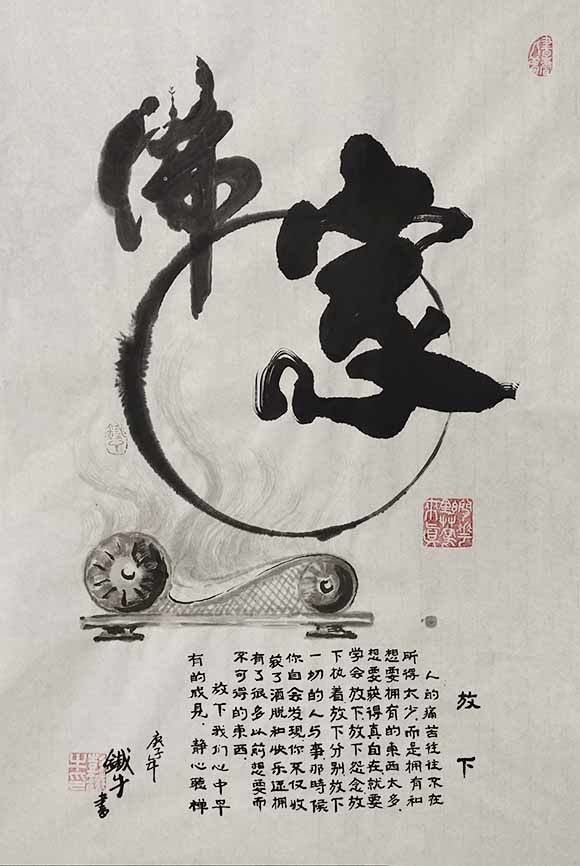 佛
家
放下
人的痛苦往往不在
所得太少.而是拥有和
想要拥有的東西太多.
想要获得真自在.就要
学会放下放下怨念放
下执着放下分别放下
一切的人与事那時候
你自会发现你不仅收
获了洒脱和快乐还拥
有了很多以前想要而
不可得的東西.
放下我们心中早
有的成見.静心聽禅
庚子年
鐵牛書